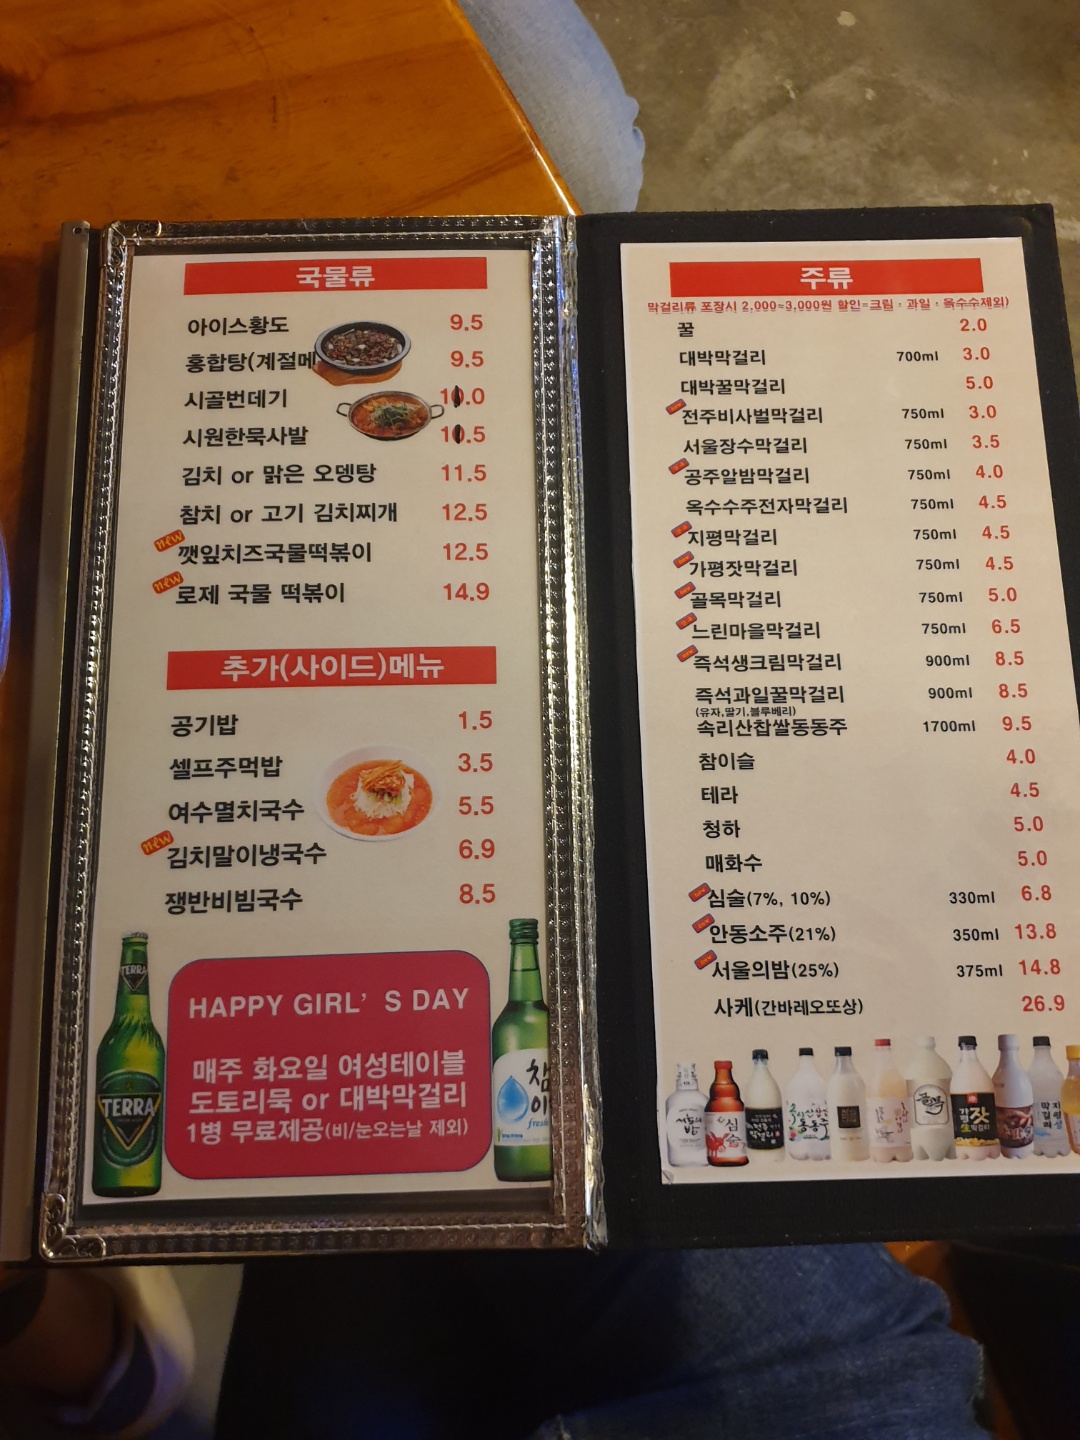 국물류
아이스황도 9.5
홍합탕(계절메 9.5
시골번데기 10.0
시원한묵사발 10.5
김치 or 맑은 오뎅탕 11.5
참치 or 고기 김치찌개 12.5
new 깻잎치즈국물떡볶이 12.5
new 로제 국물 떡볶이 14.9
추가(사이드)메뉴
공기밥 1.5
셀프주먹밥 3.5
여수멸치국수 5.5
new 김치말이냉국수 6.9
쟁반비빔국수 8.5
HAPPY GIRL' S DAY
매주 화요일 여성테이블
도토리묵 or 대박막걸리
1병 무료제공(비/눈오는날 제외)
TERRA
TERRA
참
이
fresh
주류
막걸리류 포장시 2,000~3,000원 할인=크림 · 과일 · 옥수수제외)
꿀 2.0
대박막걸리 700ml 3.0
대박꿀막걸리 5.0
전주비사벌막걸리 750ml 3.0
서울장수막걸리 750ml 3.5
공주알밤막걸리 750ml 4.0
옥수수주전자막걸리 750ml 4.5
지평막걸리 750ml 4.5
가평잣막걸리 750ml 4.5
골목막걸리 750ml 5.0
느린마을막걸리 750ml 6.5
즉석생크림막걸리 900ml 8.5
즉석과일꿀막걸리 900ml 8.5
(유자,딸기,블루베리)
속리산찹쌀동동주 1700ml 9.5
참이슬 4.0
테라 4.5
청하 5.0
매화수 5.0
심술(7%, 10%) 330ml 6.8
안동소주(21%) 350ml 13.8
서울의밤(25%) 375ml 14.8
사케(간바레오또상) 26.9
서울의밤
심술
막걸리
동동주
잣
막걸리